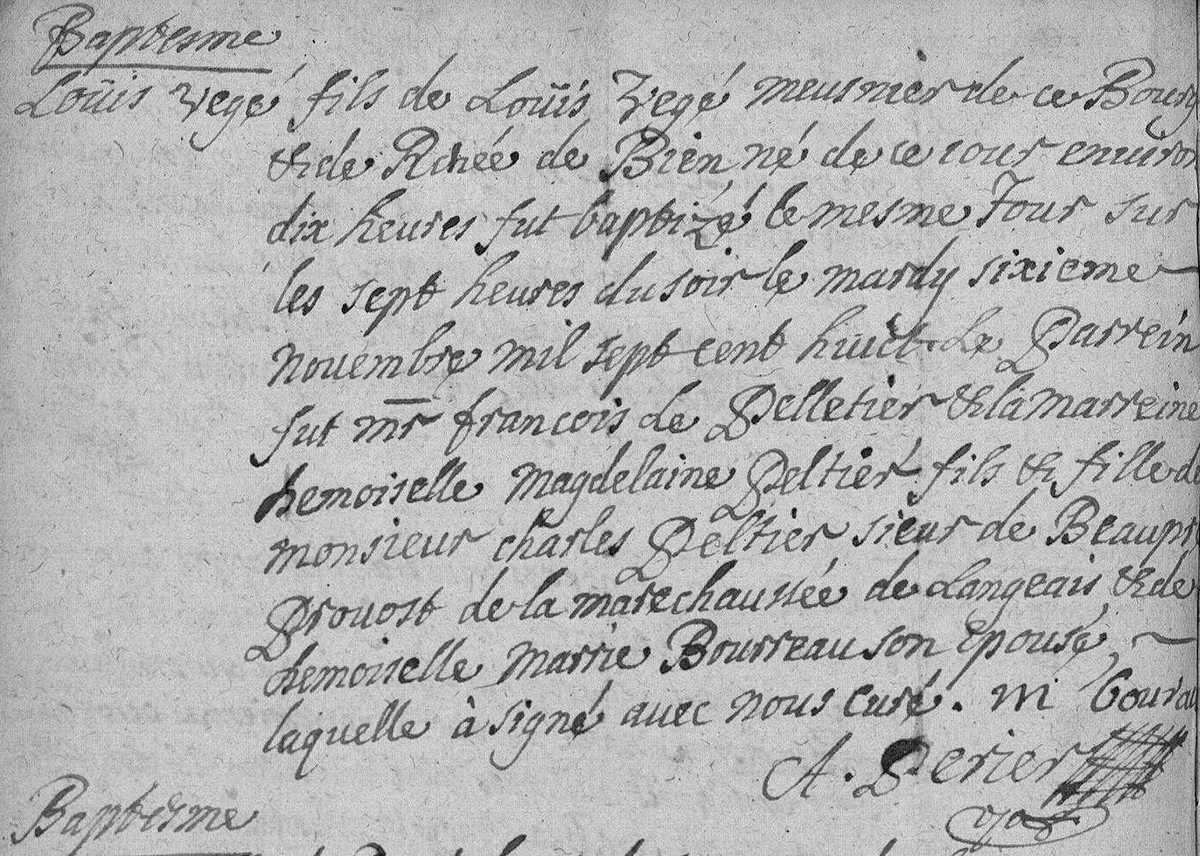 Baptesme
Loüis Vegé fils de Loüis Vegé meusnier de ce Bourg
& de Renée de Bien né de ce jour environ
dix heures fut baptizé le mesme Jour sur
les sept heures du soir le mardy sixieme
novembre mil sept cent huict. Le Parrein
fut mr françois Le Pelletier & la marreine
demoiselle magdelaine Peltier fils & fille de
monsieur charles Peltier sieur de Beaupr
Provost de la marechaussée de Langeais & de
demoiselle marrie Bourreau son epouse,
laquelle à signé avec nous curé. m
A. Perier
Baptesme